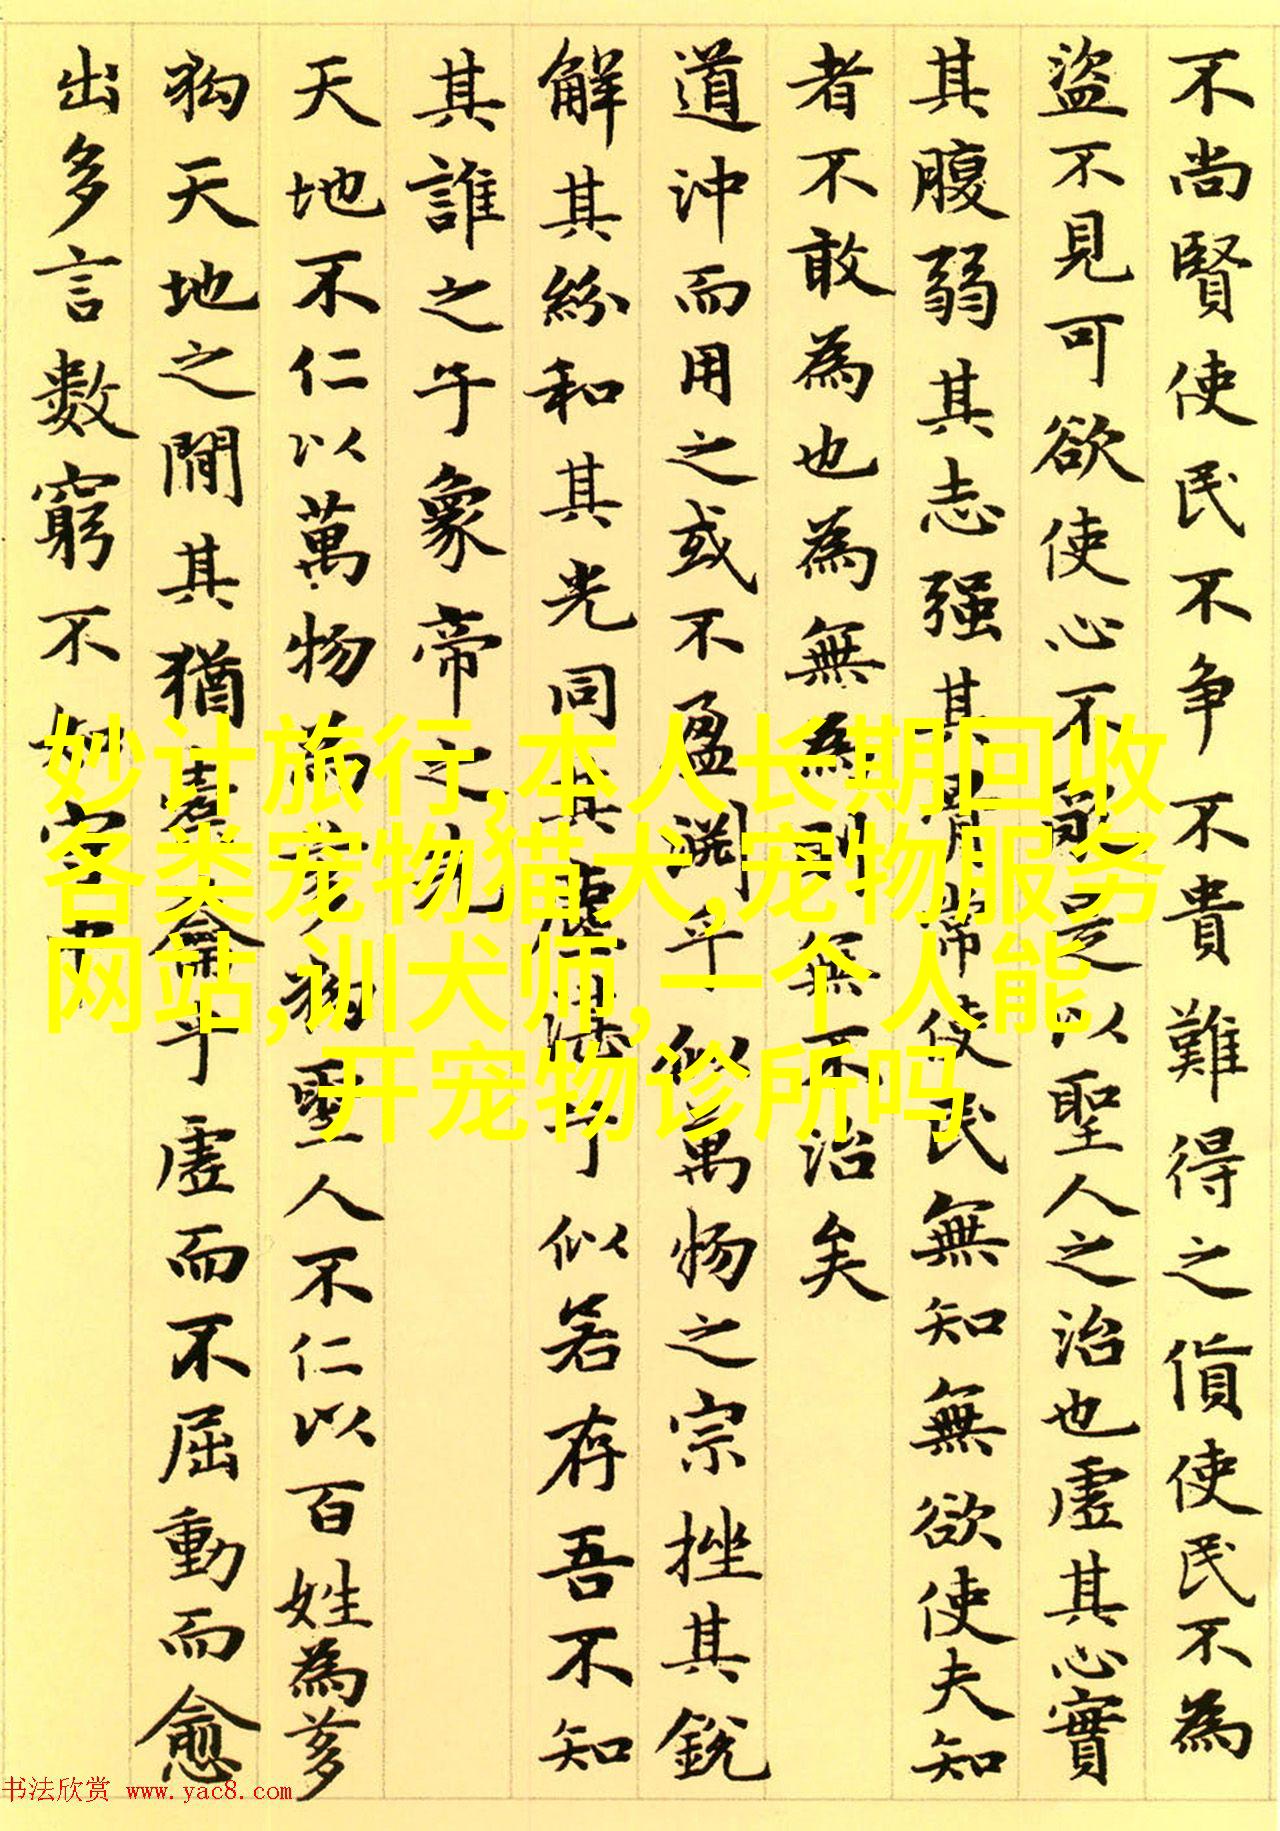 不尚賢使民不争不貴難得之貨使民不為
盜不見可欲使心不亂是以聖人之治也虛其心實
其腹弱其志强其骨常使民無知無欲使夫知
者不敢為也為無為則無不治矣
道沖而用之或不盈淵乎似萬物之宗挫其銳
解其紛和其光同其塵湛乎似若存吾不知
其誰之子象帝之先
天地不仁以萬物為芻狗聖人不仁以百姓為芻
狗天地之間其猶橐籥乎虛而不屈動而愈
出多言數窮不如守中
妙计旅行,本人长期回收
各类宠物猫犬,宠物服务
网站,训犬师,一个人能
开宠物诊所吗
书法欣赏 www.yac8.com